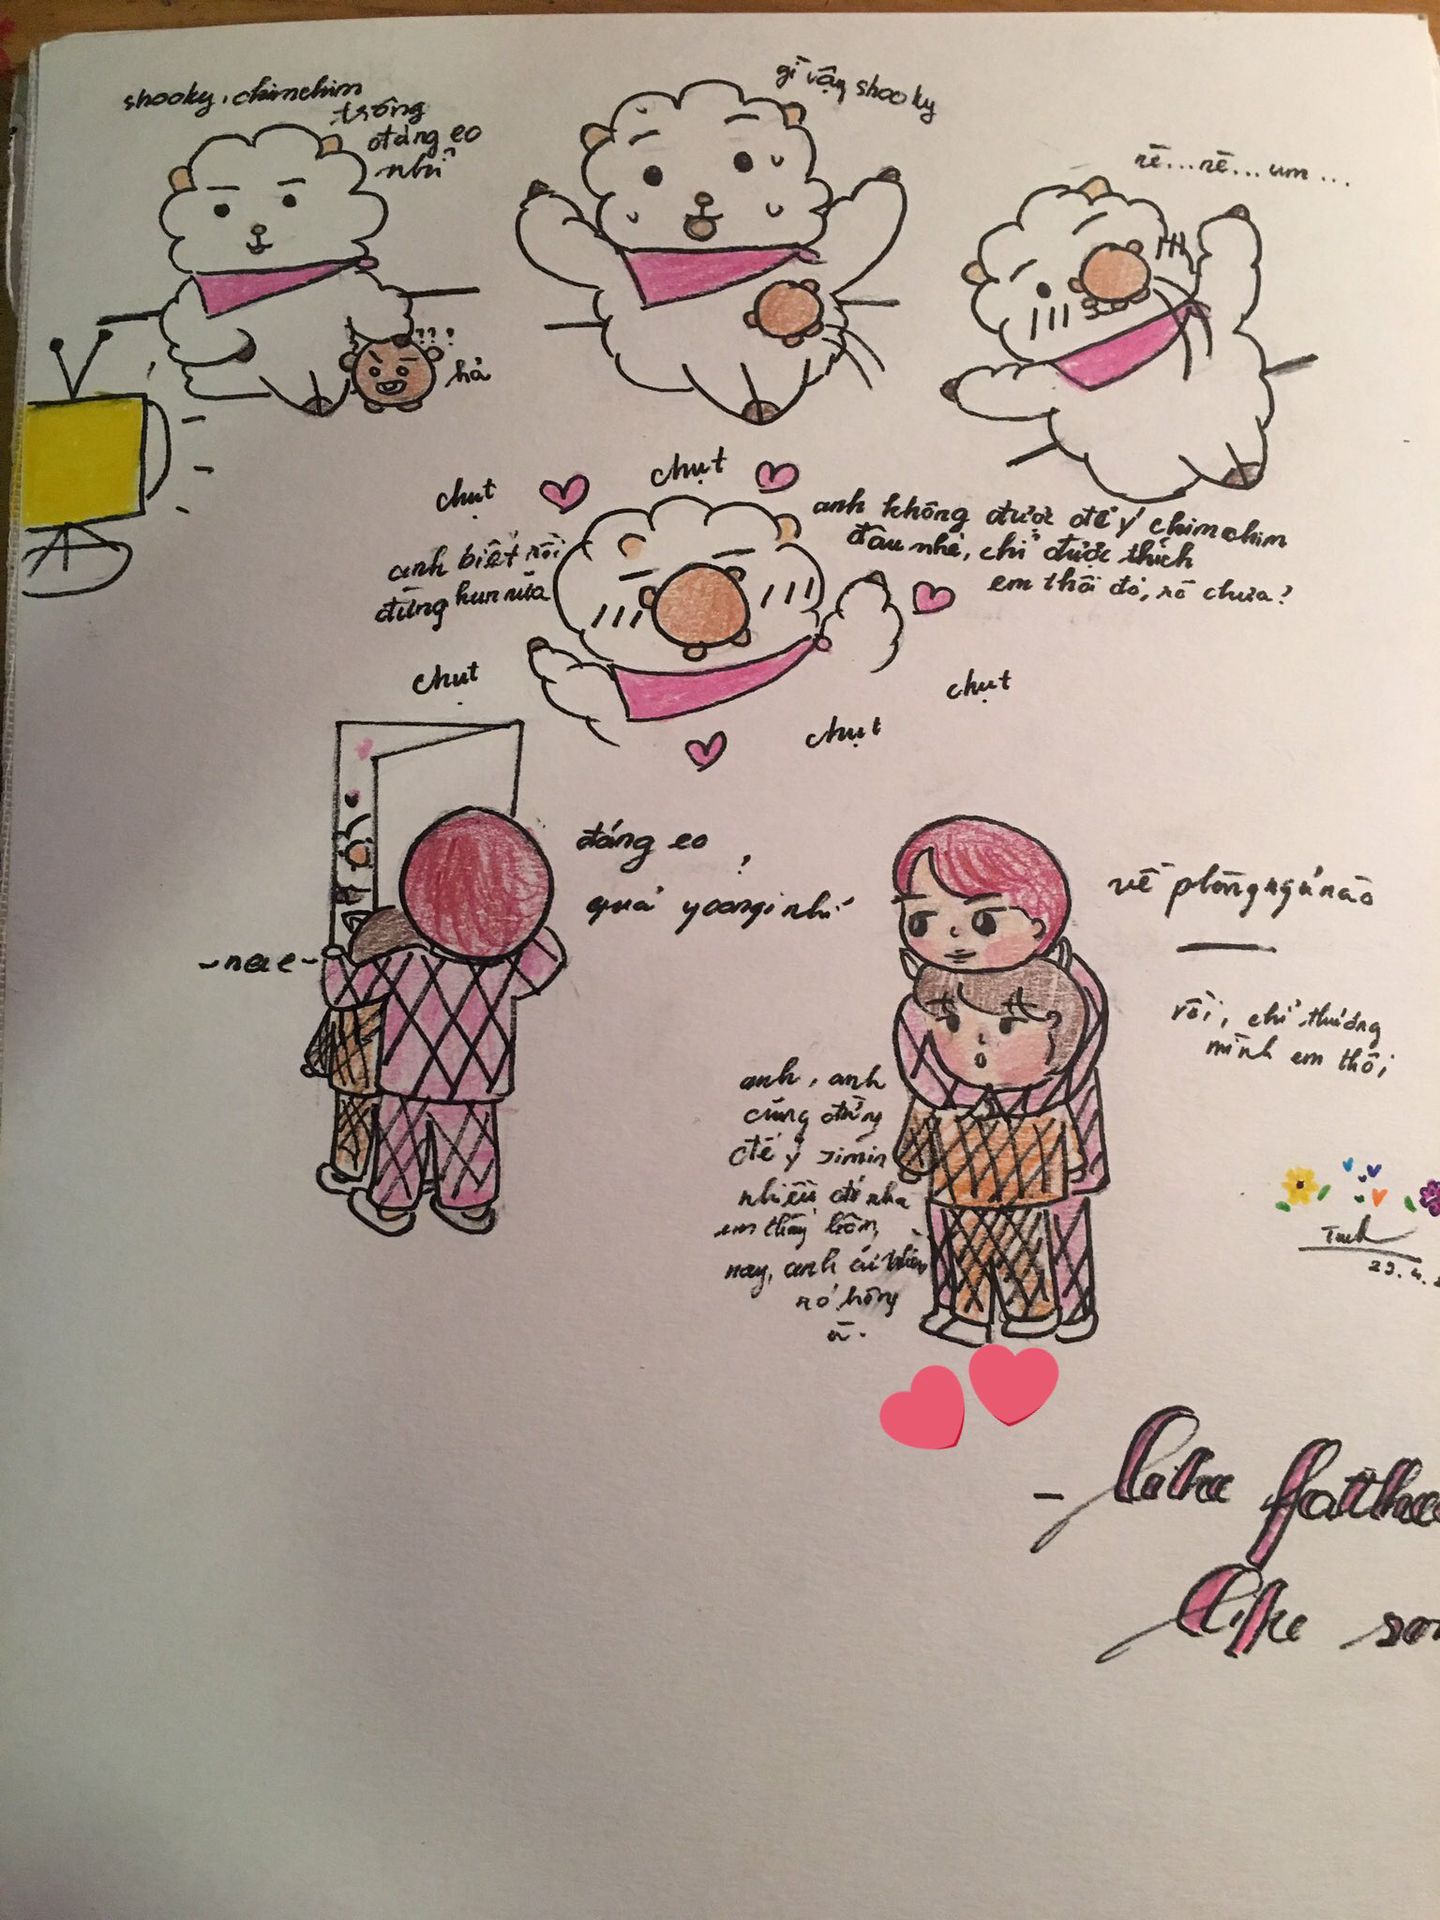 shooky, chimchim
trông
đáng eo
nhỉ
???
hả
gì vậy shooky
rê...rê...um...
chụt
chụt
anh biết rồi
đừng hun nữa
anh không được để ý chimchim
đâu nhé, chỉ được thích
em thôi đó, rõ chưa?
chụt
chụt
chụt
đáng eo
quá yoongi nhỉ
~nae~
về phòng ngủ nào
rồi, chỉ thương
mình em thôi
anh, anh
cũng đừng
để ý Jimin
nhiều đó nha
em thấy hôm
nay, anh cứ nhìn
nó hông
à.
29.4.
- like fathe
like son